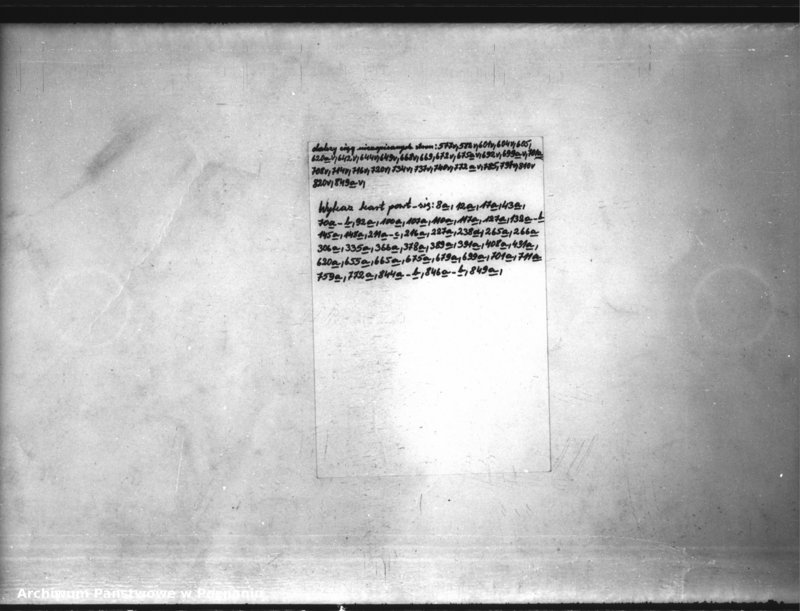 dalszy ciąg niezapisanych stron: 577v, 582v, 601v, 604v, 605,
620av, 642v, 644v, 649v, 668v, 669, 672v, 675av, 692v, 699av, 701a,
708v, 714v, 716v, 720v, 734v, 737v, 740v, 772av, 785, 791v, 810v
820v, 849av,
Wykaz kart powt-się: 8a, 12a, 17a, 43a,
70a-b, 92a, 100a, 107a, 110a, 117a, 127a, 132a-b
145a, 148a, 211a-c, 216a, 227a, 238a, 265a, 266a
306a, 335a, 366a, 378a, 389a, 391a, 408a, 491a,
620a, 655a, 665a, 675a, 679a, 699a, 701a, 711a
759a, 772a, 844a-b, 846a-b, 849a,
Archiwum Państwowe w Poznaniu